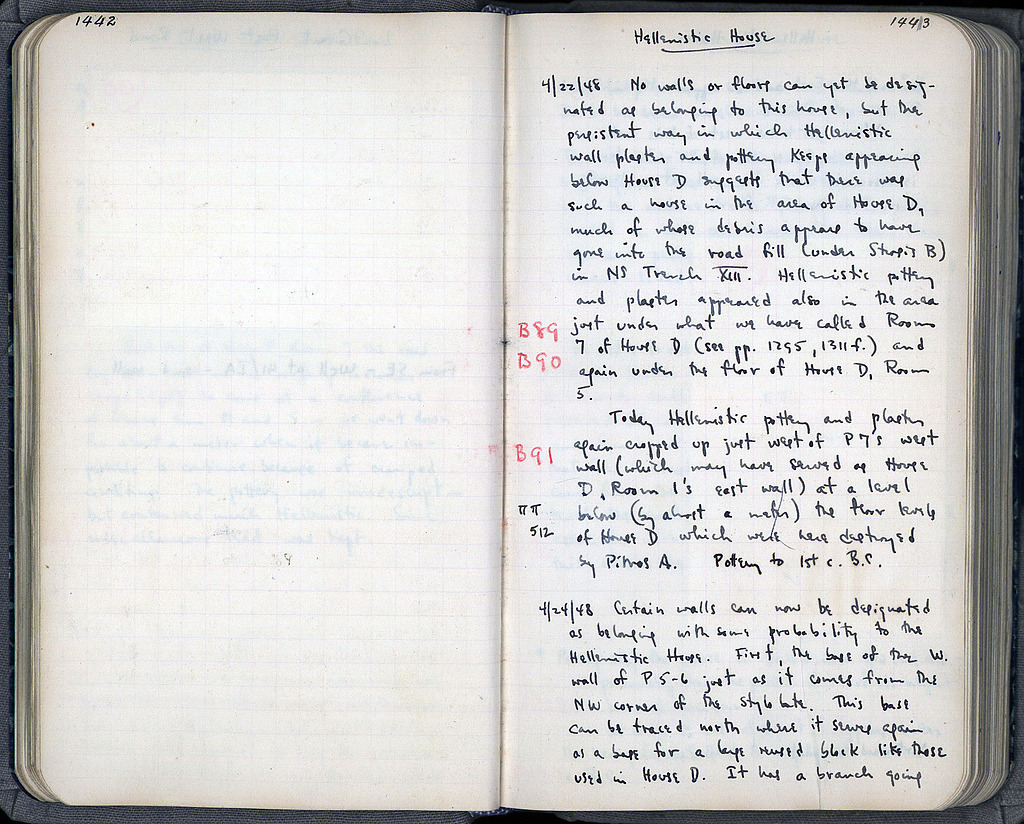 1442
1443
Hellenistic House
4/22/48 No walls or floors can yet be desig-
nated as belonging to this house, but the
persistent way in which Hellenistic
wall plaster and pottery keeps appearing
below House D suggests that there was
such a house in the area of House D,
much of whose debris appears to have
gone into the road fill (under Strosis B)
in NS Trench XIII. Hellenistic pottery
and plaster appeared also in the area
B89 just under what we have called Room
7 of House D (see pp. 1295, 1311f.) and
B90 again under the floor of House D, Room
5.
Today Hellenistic pottery and plaster
again cropped up just west of P 7's west
B91 wall (which may have served as House
D, Room 1's east wall) at a level
ππ below (by almost a meter) the floor levels
512 of House D which were here destroyed
by Pithos A. Pottery to 1st c. B.C.
4/24/48 Certain walls can now be designated
as belonging with some probability to the
Hellenistic House. First, the base of the W.
wall of P 5-6 just as it comes from the
NW corner of the stylobate. This base
can be traced north where it serves again
as a base for a large reused block like those
used in House D. It has a branch going